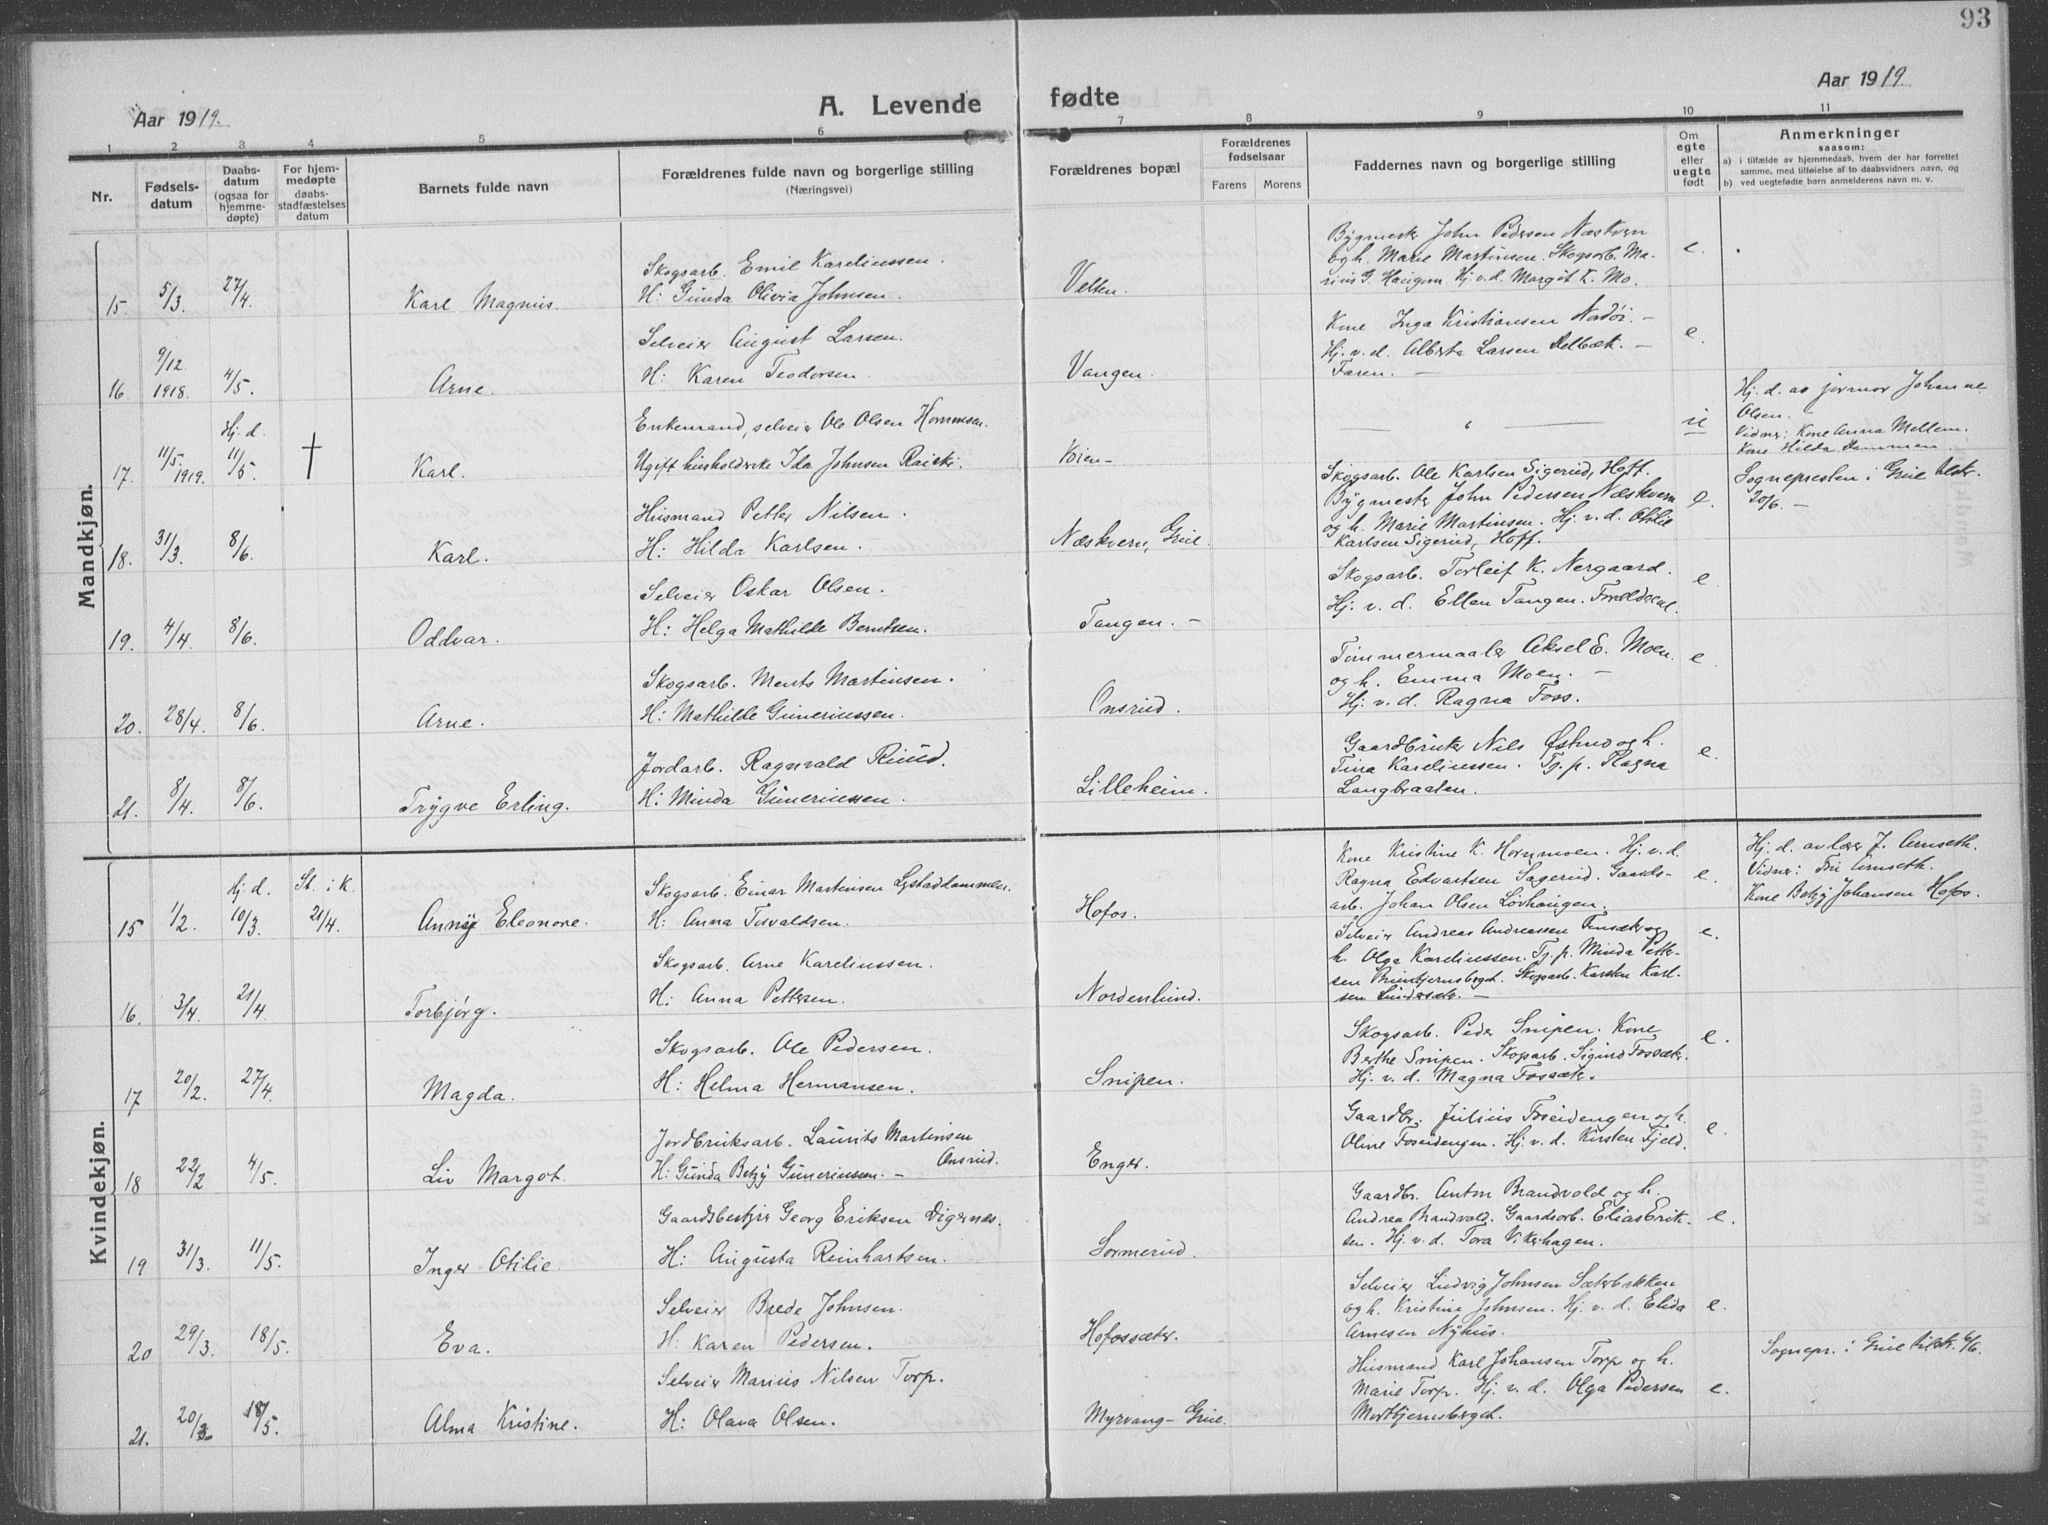 93
Aar 1919.
A. Levende
fødte
Aar 1919.
1 2 3 4 5 6 7 8 9 10 11
Nr.
Fødsels-
datum
Daabs-
datum
(ogsaa for
hjemme-
døpte)
For hjem-
medøpte
daabs-
stadfæstelses
datum
Barnets fulde navn
Forældrenes fulde navn og borgerlige stilling
(Næringsvei)
Forældrenes bopæl
Forældrenes
fødselsaar
Farens Morens
Faddernes navn og borgerlige stilling
Om
egte
eller
uegte
født
Anmerkninger
saasom:
a) i tilfælde av hjemmedaab, hvem der har forrettet
samme, med tilføielse af to daabsvidners navn, og
b) ved uegtefødte barn anmelderens navn m. v.
Mandkjøn.
15. 5/3. 27/4. Karl Magnus.
Skogsarb. Emil Kareliussen.
H: Gunda Olivia Johnsen.
Velten.
Bygmester John Pedersen Næskvern
og h. Marie Martinsen. Skogsarb. Ma-
rius G. Haugen. Hj. v. d. Margot K. Mo.
e.
16 9/12 1918. 4/5. Arne.
Selveier August Larsen.
H: Karen Teodorsen.
Vangen.
Kone Inga Kristiansen Nordøi. –
Hj. v. d. Alberta Larsen –
Faren. –
e.
17. 11/5. 1919. Hj. d. 11/5. † Karl.
Enkemand, selveier Ole Olsen
Ugift husholderske Ida Johnsen
u
Hj. d. av jormor Johanne
Olsen. –
Vidner: Kone Anna Mellem.
Kone Hilda
18. 31/3. 8/6. Karl.
Husmand Petter Nilsen.
H: Hilda Karlsen.
Næskvern, Grue.
Skogsarb. Ole Karlsen Sigerud, Hoff.
Bygmester John Pedersen Næskvern
og h. Marie Martinsen. Hj. v. d. Otilie
Karlsen Sigerud, Hoff.
e.
Sognepresten i Grue tilstr.
20/6. –
19. 4/4. 8/6. Oddvar.
Selveier Oskar Olsen.
H: Helga Mathilde Berntsen.
Tangen. –
Skogsarb. Torleif K. Nergaard.
Hj. v. d. Ellen Tangen. Forældrene.
e
20. 28/4. 8/6. Arne.
Skogsarb. Ments Martinsen.
H: Mathilde Guneriussen.
Onsrud.
Tømmermaaler Aksel E. Moen.
og h. Emma Moen. –
Hj. v. d. Ragna Foss.
e.
21. 8/4. 8/6. Trygve Erling.
Jordarb. Ragnvald Ruud.
H: Minda Guneriussen.
Lilleheim.
Gaardbruker Nils Østmo og h.
Tina Kareliussen. Tj. p. Ragna
Langbraaten.
e.
Kvindekjøn.
15 1/2. Hj. d. 10/3. St. i K. 21/4. Anny Eleonore.
Skogsarb. Einar Martinsen
H: Anna Torvaldsen.
Hofos.
Kone Kristine K. Hornmoen. Hj. v. d.
Ragna Edvartsen Sagerud. Gaards-
arb. Johan Olsen Løvhaugen.
e.
Hj. d. av lærer J. Arnseth.
Vidner: Fru Arnseth.
Kone Betzy Johansen Hofos.
16. 3/4. 21/4. Torbjørg.
Skogsarb. Arne Kareliussen.
H: Anna Pettersen.
Nordenlund.
Selveier Andreas Andreassen og
h. Olga Kareliussen. Tj. p. Minda Petter-
sen Skogsarb. Karsten Karl-
sen Lindsæter. –
e.
17 20/2. 27/4. Magda.
Skogsarb. Ole Pedersen.
H: Helma Hermansen.
Snipen.
Skogsarb. Peder Snipen. Kone
Berthe Snipen. Skogsarb. Sigurd Fossæter.
Hj. v. d. Magna Fossæter.
e.
18 22/2 4/5. Liv Margot.
Jordbruksarb. Laurits Martinsen
Onsrud.
H: Gunda Betzy Guneriussen. –
Enger.
Gaardbr. Julius Foseidengen og h.
Oline Foseidengen. Hj. v. d. Kirsten Fjeld.
e.
19 31/3. 11/5. Inger Otilie.
Gaardsbestyrer Georg Eriksen Digernæs.
H: Augusta Reinhartsen.
Sormerud.
Gaardbr. Anton Brandvold og h.
Andrea Brandvold. Gaardsarb. Elias Erik-
sen. Hj. v. d. Tora Vikerhagen.
e.
20 29/3. 18/5. Eva.
Selveier Brede Johnsen.
H: Karen Pedersen.
Hofossæter.
Selveier Ludvig Johnsen Sæterbakken
og h. Kristine Johnsen. Hj. v. d. Elida
Arnesen Nyhus.
e.
21. 20/3 18/5. Alma Kristine.
Selveier Marius Nilsen Torp.
H: Olava Olsen.
Myrvang – Grue.
Husmand Karl Johansen Torp og h.
Marie Torp. Hj. v. d. Olga Pedersen
e.
Sognepr. i Grue tilstr. 6/6.